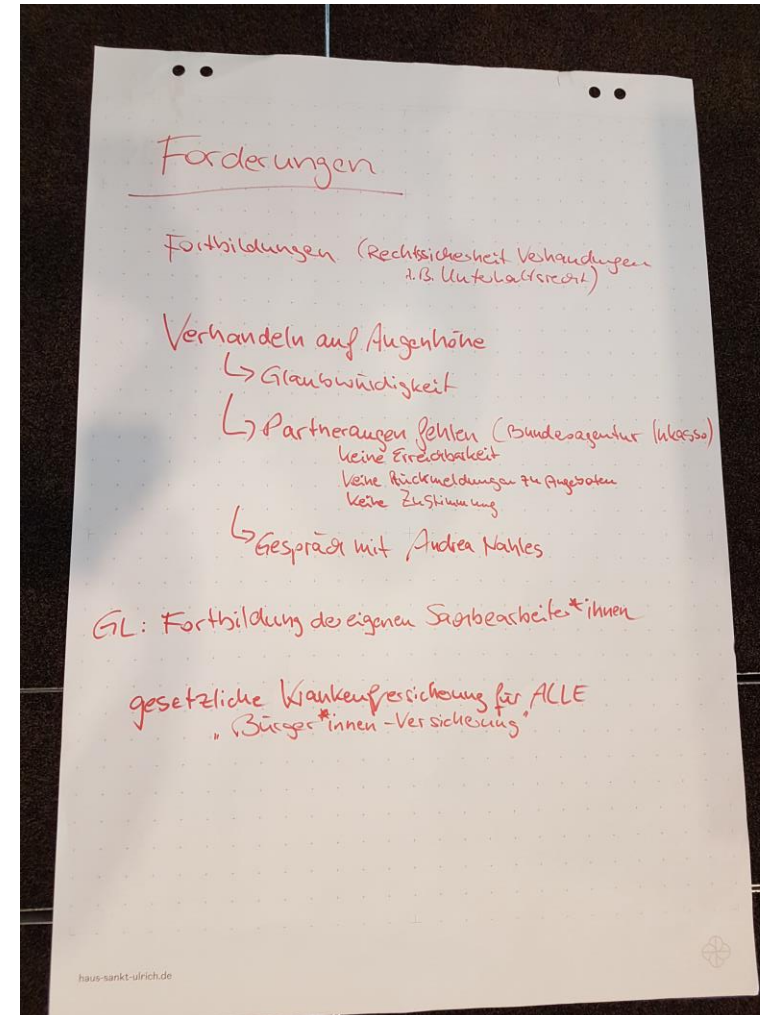 Forderungen
Fortbildungen (Rechtssicherheit Verhandlungen
z.B. Unterhaltsrecht)
Verhandeln auf Augenhöhe
↳ Glaubwürdigkeit
↳ Partnerangen fehlen (Bundesagentur Inkasso)
keine Erreichbarkeit
keine Rückmeldungen zu Angeboten
keine Zustimmung
↳ Gespräch mit Andrea Nahles
GL: Fortbildung der eigenen Sachbearbeiter*innen
gesetzliche Krankenversicherung für ALLE
„Bürger*innen-Versicherung"
haus-sankt-ulrich.de